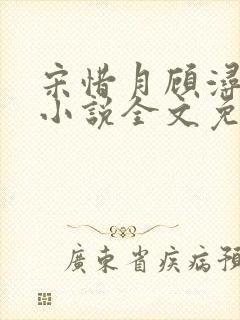 宋惜月顾浔
小说全文免
廣東省疾病預